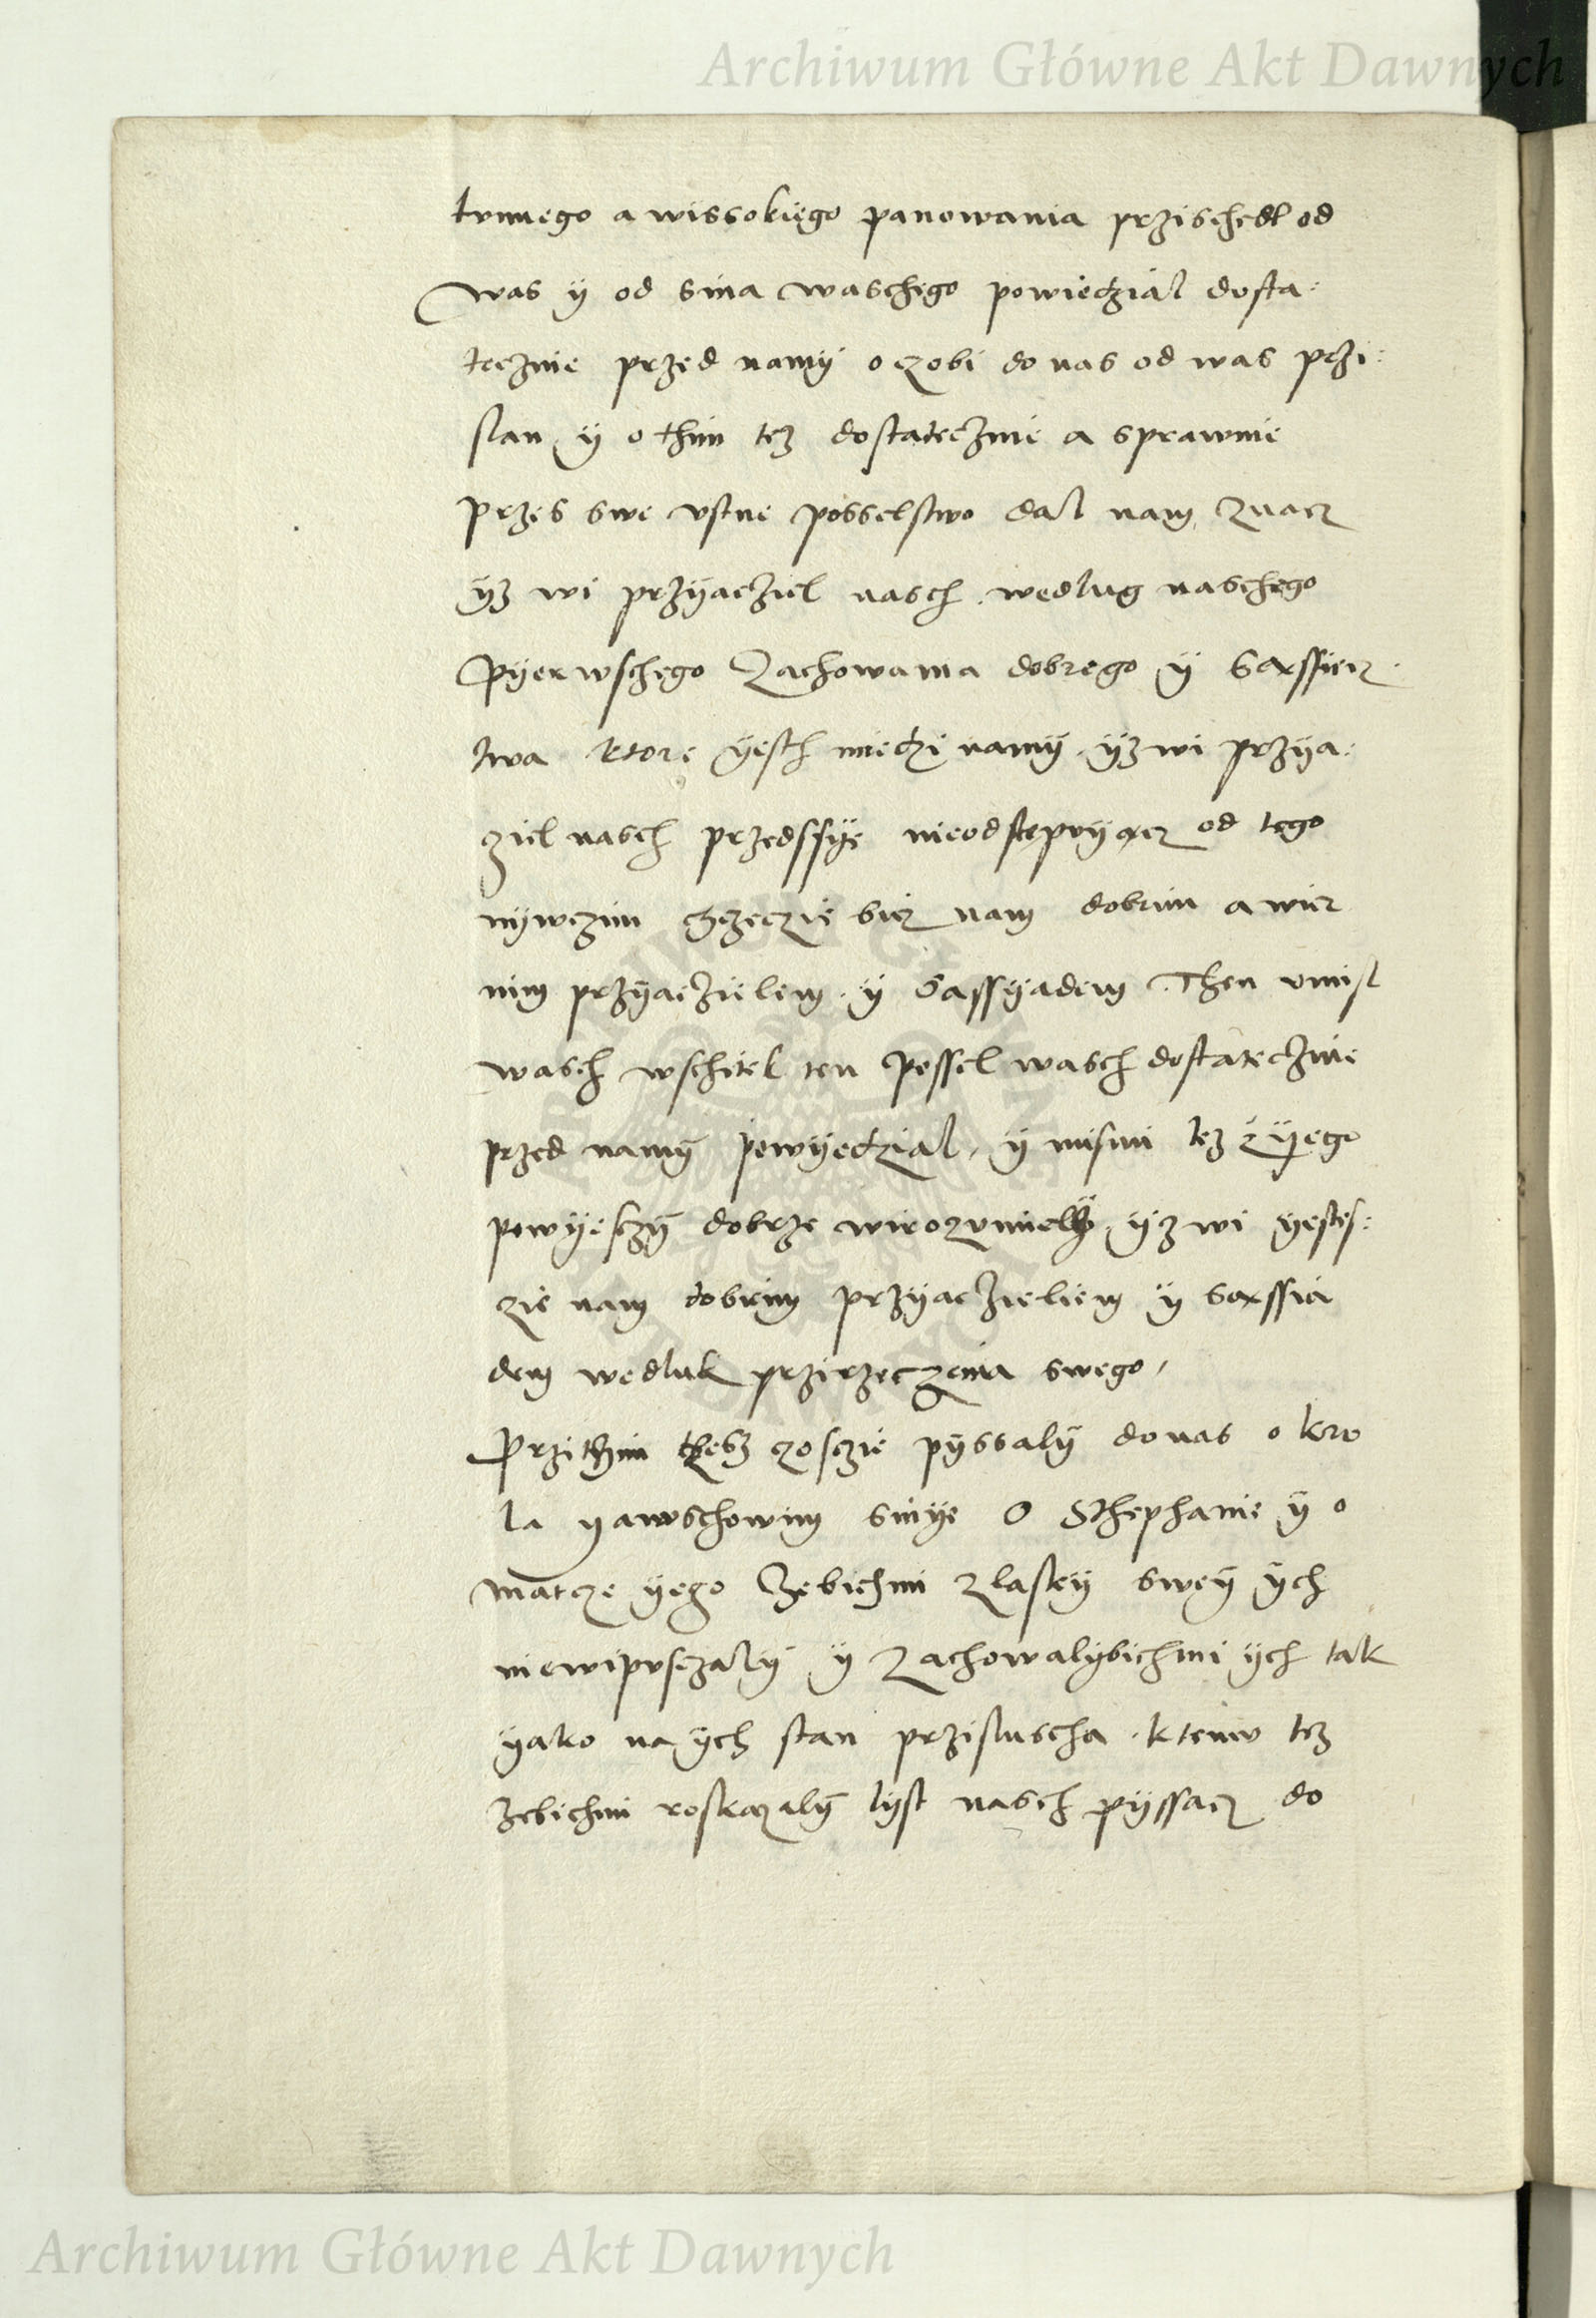 Archiwum Główne Akt Dawnych
tvmego a wissokiego panowania przischedl od
was y od sina waschego powiedzial dosta:
tecznie przed namÿ o czobi do nas od was przi:
slan y o thim tez dostatecznie a sprawnie
przes swe vstne posselstwo dal nam znacz
ÿz wi przÿacziel nasch wedlug naschego
pÿerwschego zachowania dobrego ÿ sąssiecz
twa ktore ÿesth miedzi namÿ ÿz wi przÿa:
ziel nasch przedssÿe nieodstepvÿącz od tego
nÿwczim chczeczie bicz nam dobrim a wier
nim przÿaczielem ÿ sassÿadem Then vmisl
wasch wschitek ten possel wasch dostatecznie
przed namÿ powÿedzial, ÿ mismi tez zÿego
powÿesczÿ dobrze wirozvmielÿ ÿz wi ÿestes:
zie nam dobrim przÿaczieliem ÿ sąssia
dem wedluk przirzeczenia swego,
Przithim thesz zosczie pÿssalÿ do nas o kro
la ÿanvschowim sinÿe O Sthephanie ÿ o
matcze ÿego zebichmi z laskÿ sweÿ ÿch
niewipvsczalÿ ÿ zachowalÿbichmi ÿch tak
ÿako na ÿch stan przislucha ktemv tez
zebichmi roskazalÿ lÿst nasch pÿssacz do
Archiwum Główne Akt Dawnych